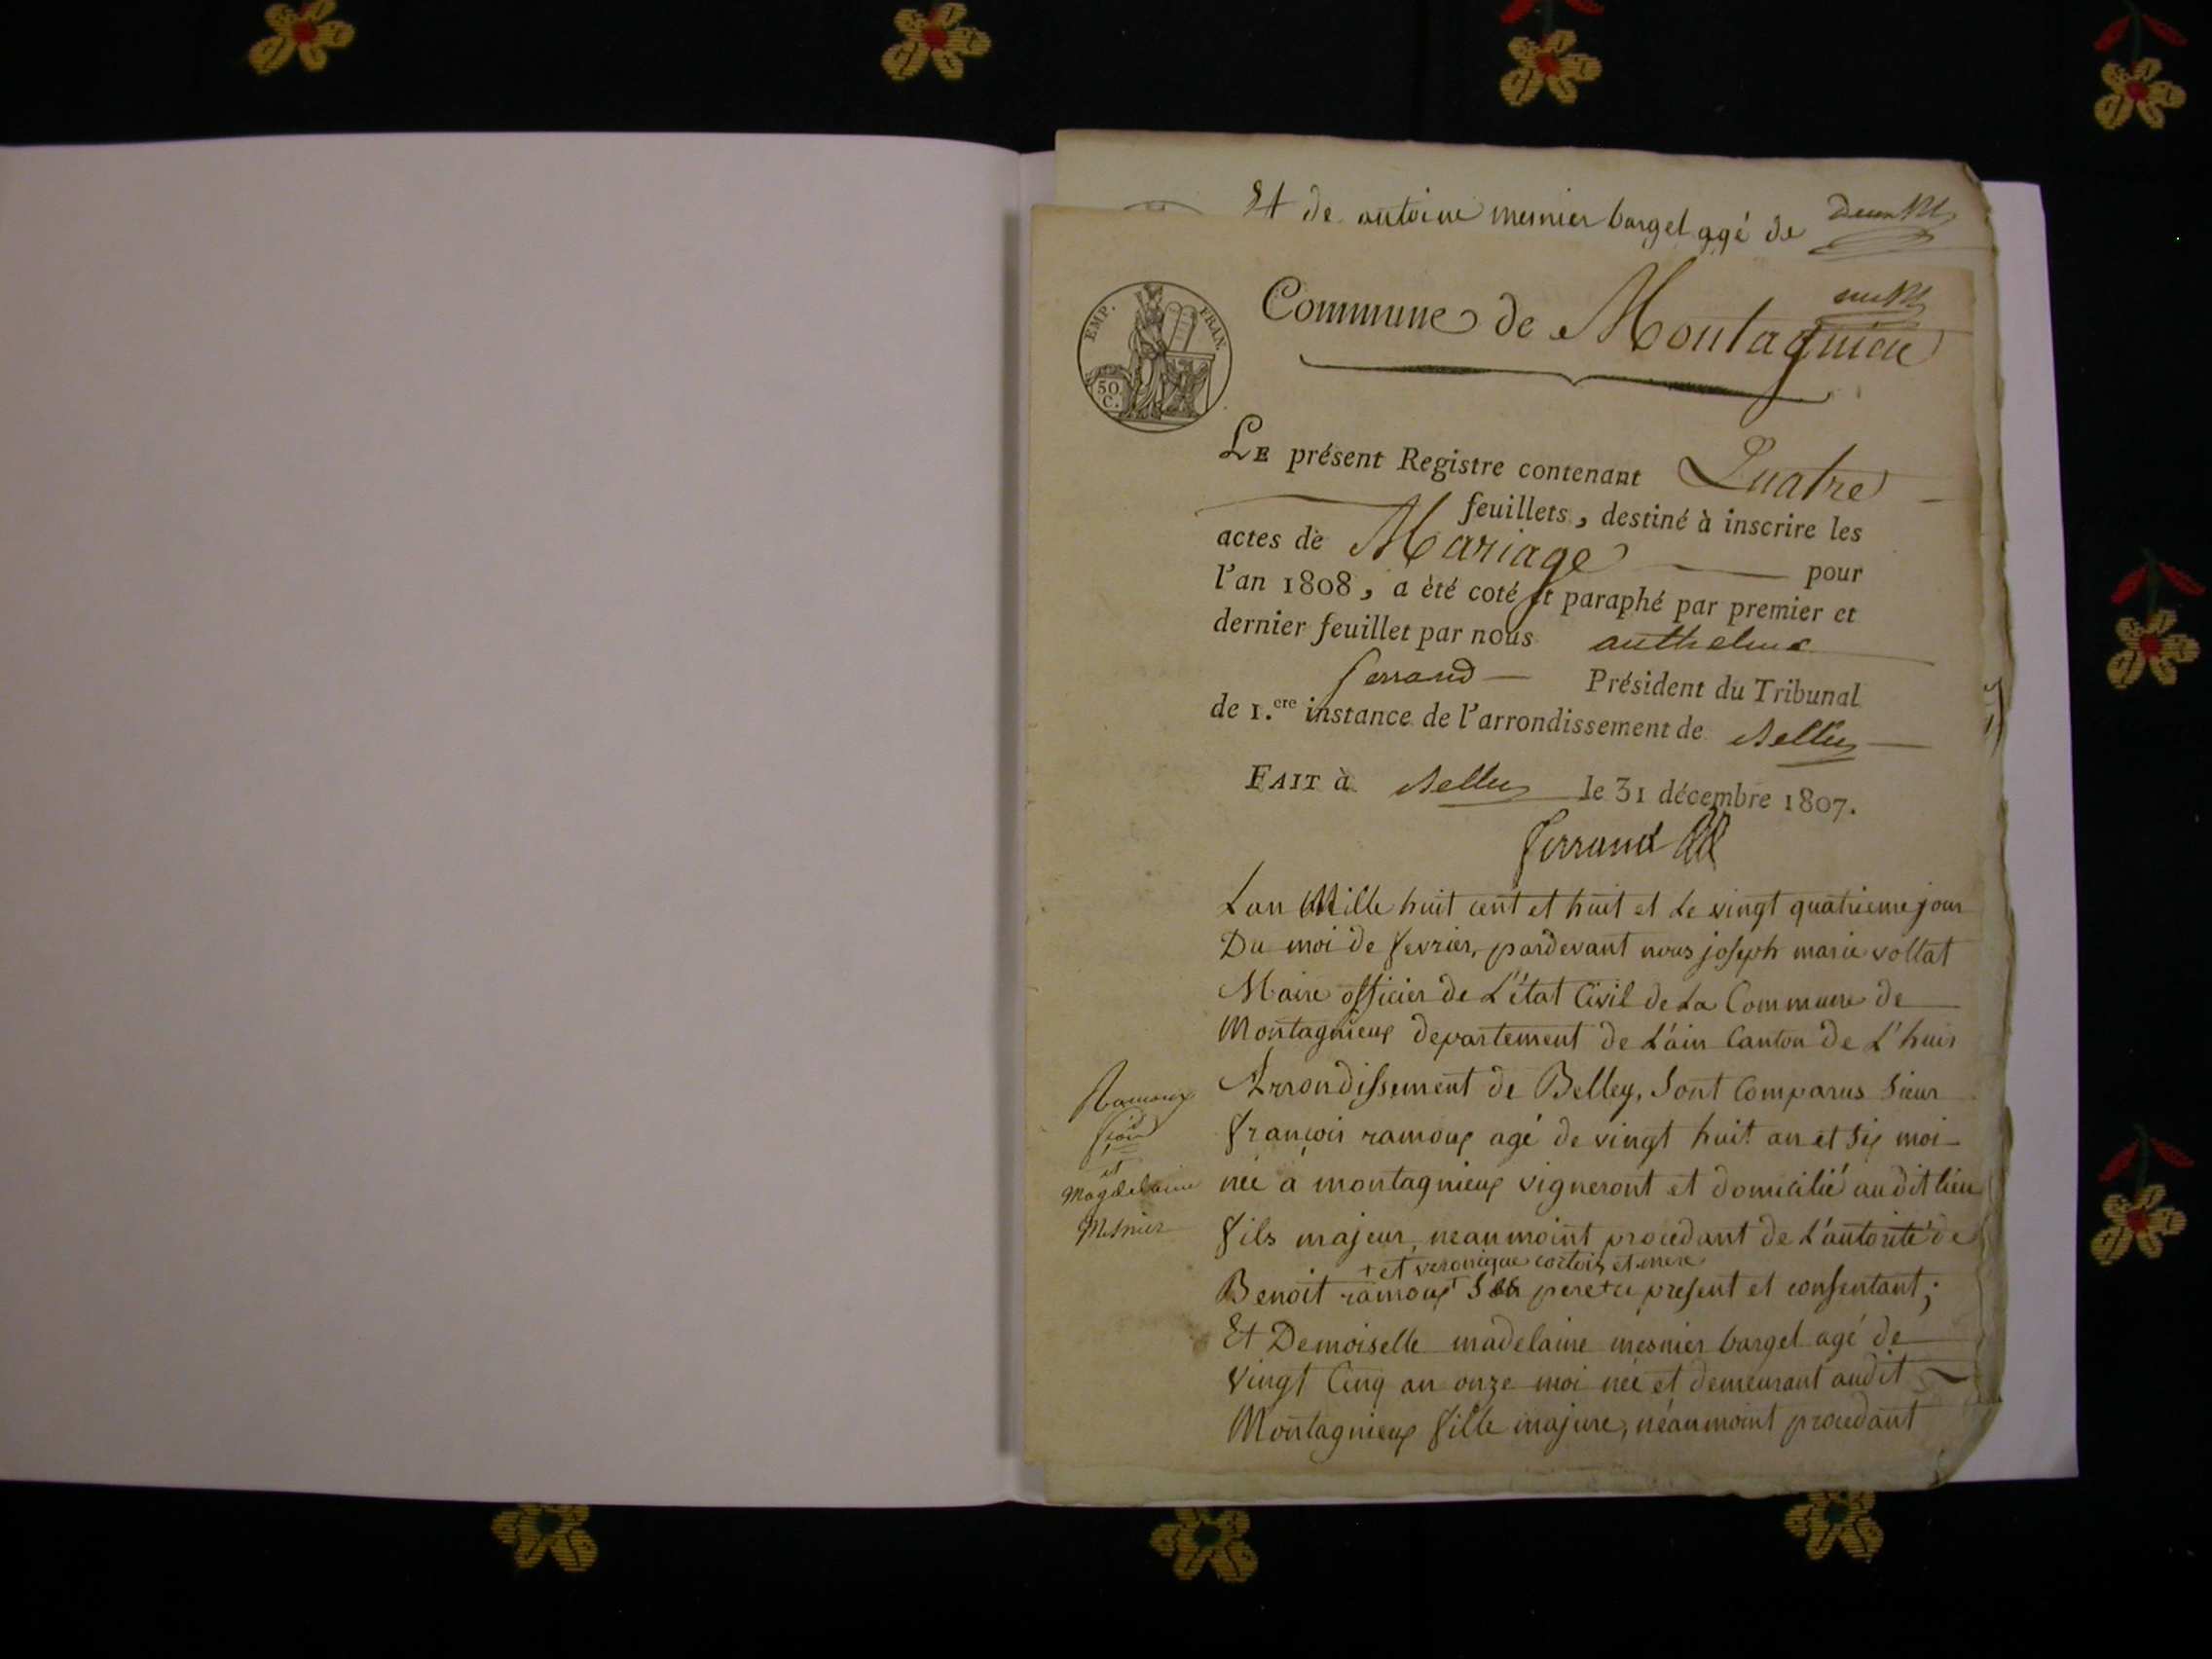 Et de antoine mesnier bargel agé de
EMP. FRAN.
50 C.
Commune de Montagnieu
LE présent Registre contenant Quatre
feuillets, destiné à inscrire les
actes de Mariage pour
l'an 1808, a été coté et paraphé par premier et
dernier feuillet par nous anthelme
ferrand Président du Tribunal
de 1.ere instance de l'arrondissement de Belley
FAIT à Belley le 31 décembre 1807.
ferrand
Lan Mille huit cent et huit et Le vingt quatrieme jour
Du moi de fevrier, pardevant nous joseph marie vollat
Maire officier de L'état Civil de La Commune de
Montagnieux departement de L'ain Canton de L'huis
Arrondissement de Belley, Sont Comparus Sieur
françois ramoux agé de vingt huit an et six moi
née a montagnieux vigneront et domicilié au dit lieu
fils majeur, neanmoint procedant de L'autorité de
+ et veronique cortois et mere
Benoit ramoux Son pere + ci present et consentant;
Et Demoiselle madelaine mesnier bargel agé de
Vingt Cinq an onze moi née et demeurant audit
Montagnieux fille majure, néanmoint procedant
Ramoux
et
Magdelaine
Mesnier